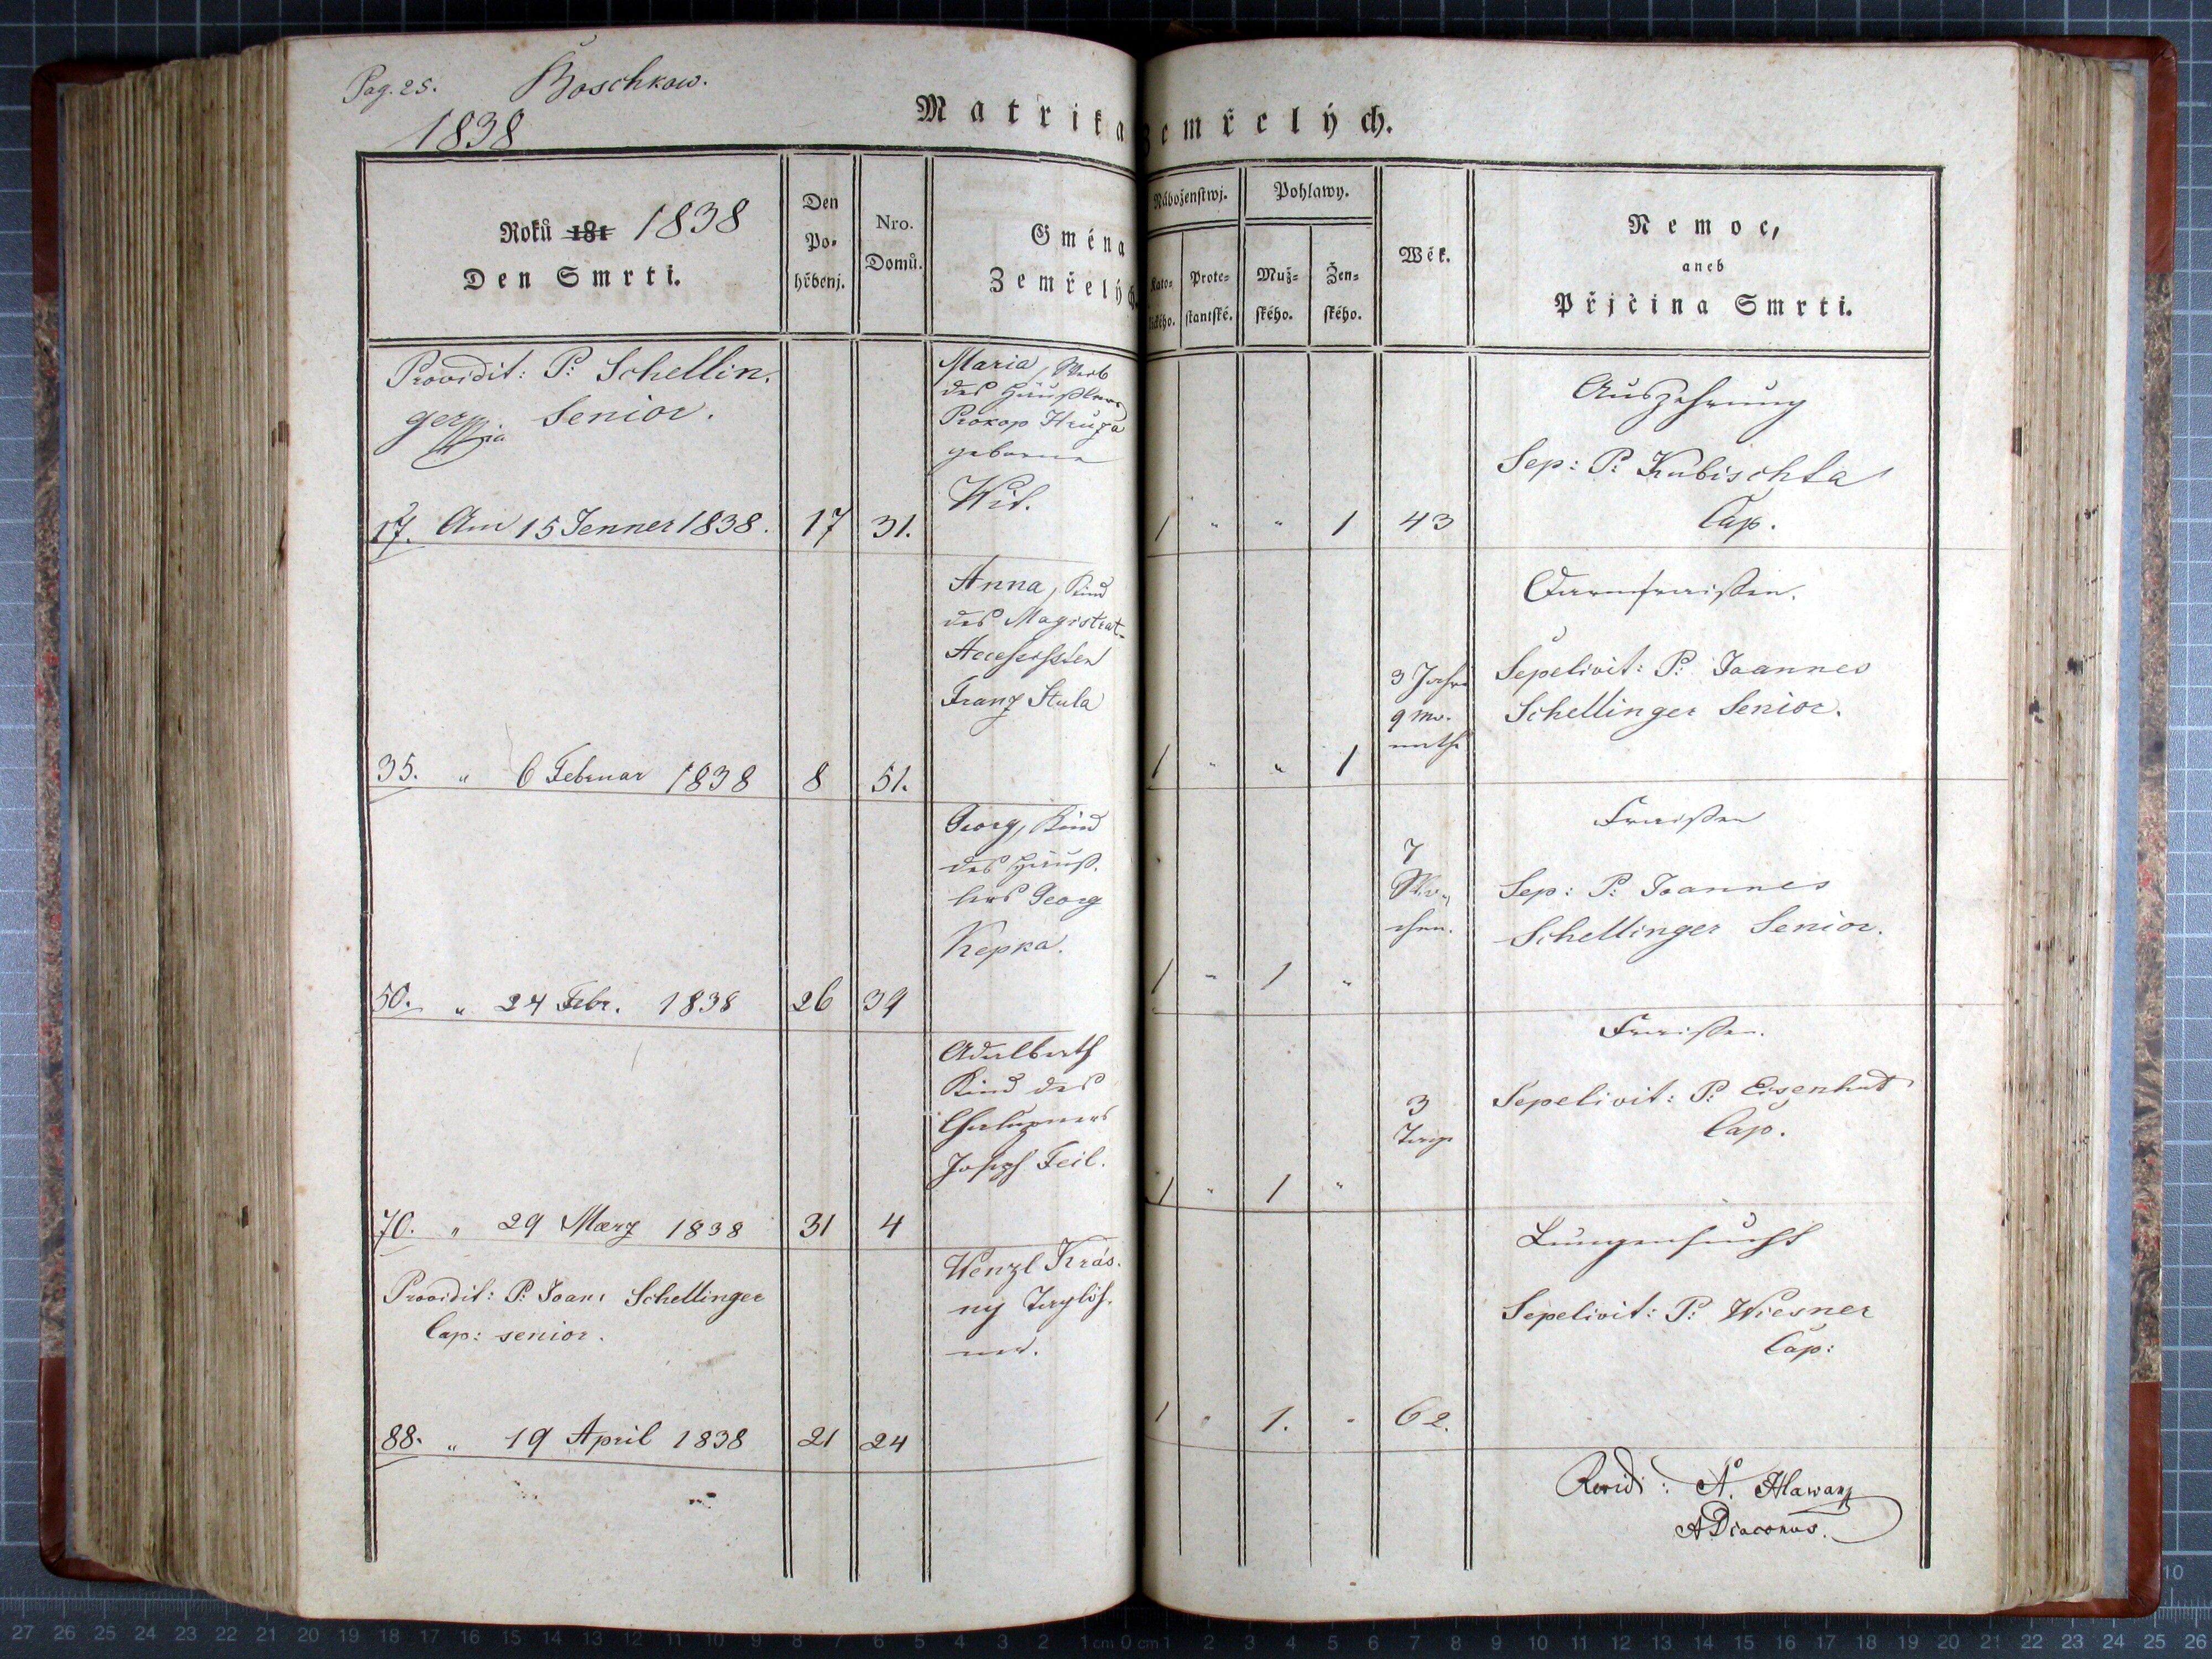 Pag. 25. Boschkow.
1838
Matrika Zemřelých.
Roků 181 1838
Den Smrti.
Den
Po-
hřbenj.
Nro.
Domů.
Gména
Zemřelých.
Náboženstwj.
Kato-
lického.
Prote-
stantské.
Pohlawy.
Muž-
ského.
Žen-
ského.
Wěk.
Nemoc,
aneb
Přjčina Smrti.
Providit: P: Schellin.
ger Senior.
17. Am 15 Jenner 1838. 17 31.
Maria, Weib
des Häußlers
Prokop Hruza
geborne
Wit.
1 " " 1 43
Auszehrung
Sep: P: Kubischta
Cap.
35. " 6 Februar 1838 8 51.
Anna, Kind
des Magistrat-
Accessisten
Franz Stula
1 " " 1
3 Jahre
9 Mo-
nathe
Darmfraißen.
Sepelivit: P: Joannes
Schellinger Senior.
50. " 24 Febr. 1838 26 39
Georg, Kind
des Häuß-
lers Georg
Kepka.
1 " 1 "
7
Wo-
chen.
Fraißen
Sep: P: Joannes
Schellinger Senior.
70. " 29 Maerz 1838 31 4
Adalberth
Kind des
Chalupners
Joseph Feil.
1 " 1 "
3
Tage
Fraißen.
Sepelivit: P: Eisenhut
Cap.
Providit: P: Joan: Schellinger
Cap: senior.
88. " 19 April 1838 21 24
Wenzl Krás-
ný Taglöh-
ner.
1 " 1. " 62.
Lungensucht
Sepelivit: P: Wiesner
Cap:
Revidi: A. Hlawacz
ADiaconus.
27 26 25 24 23 22 21 20 19 18 17 16 15 14 13 12 11 10 9 8 7 6 5 4 3 2 1 cm 0 cm 1 2 3 4 5 6 7 8 9 10 11 12 13 14 15 16 17 18 19 20 21 22 23 24 25 26
10